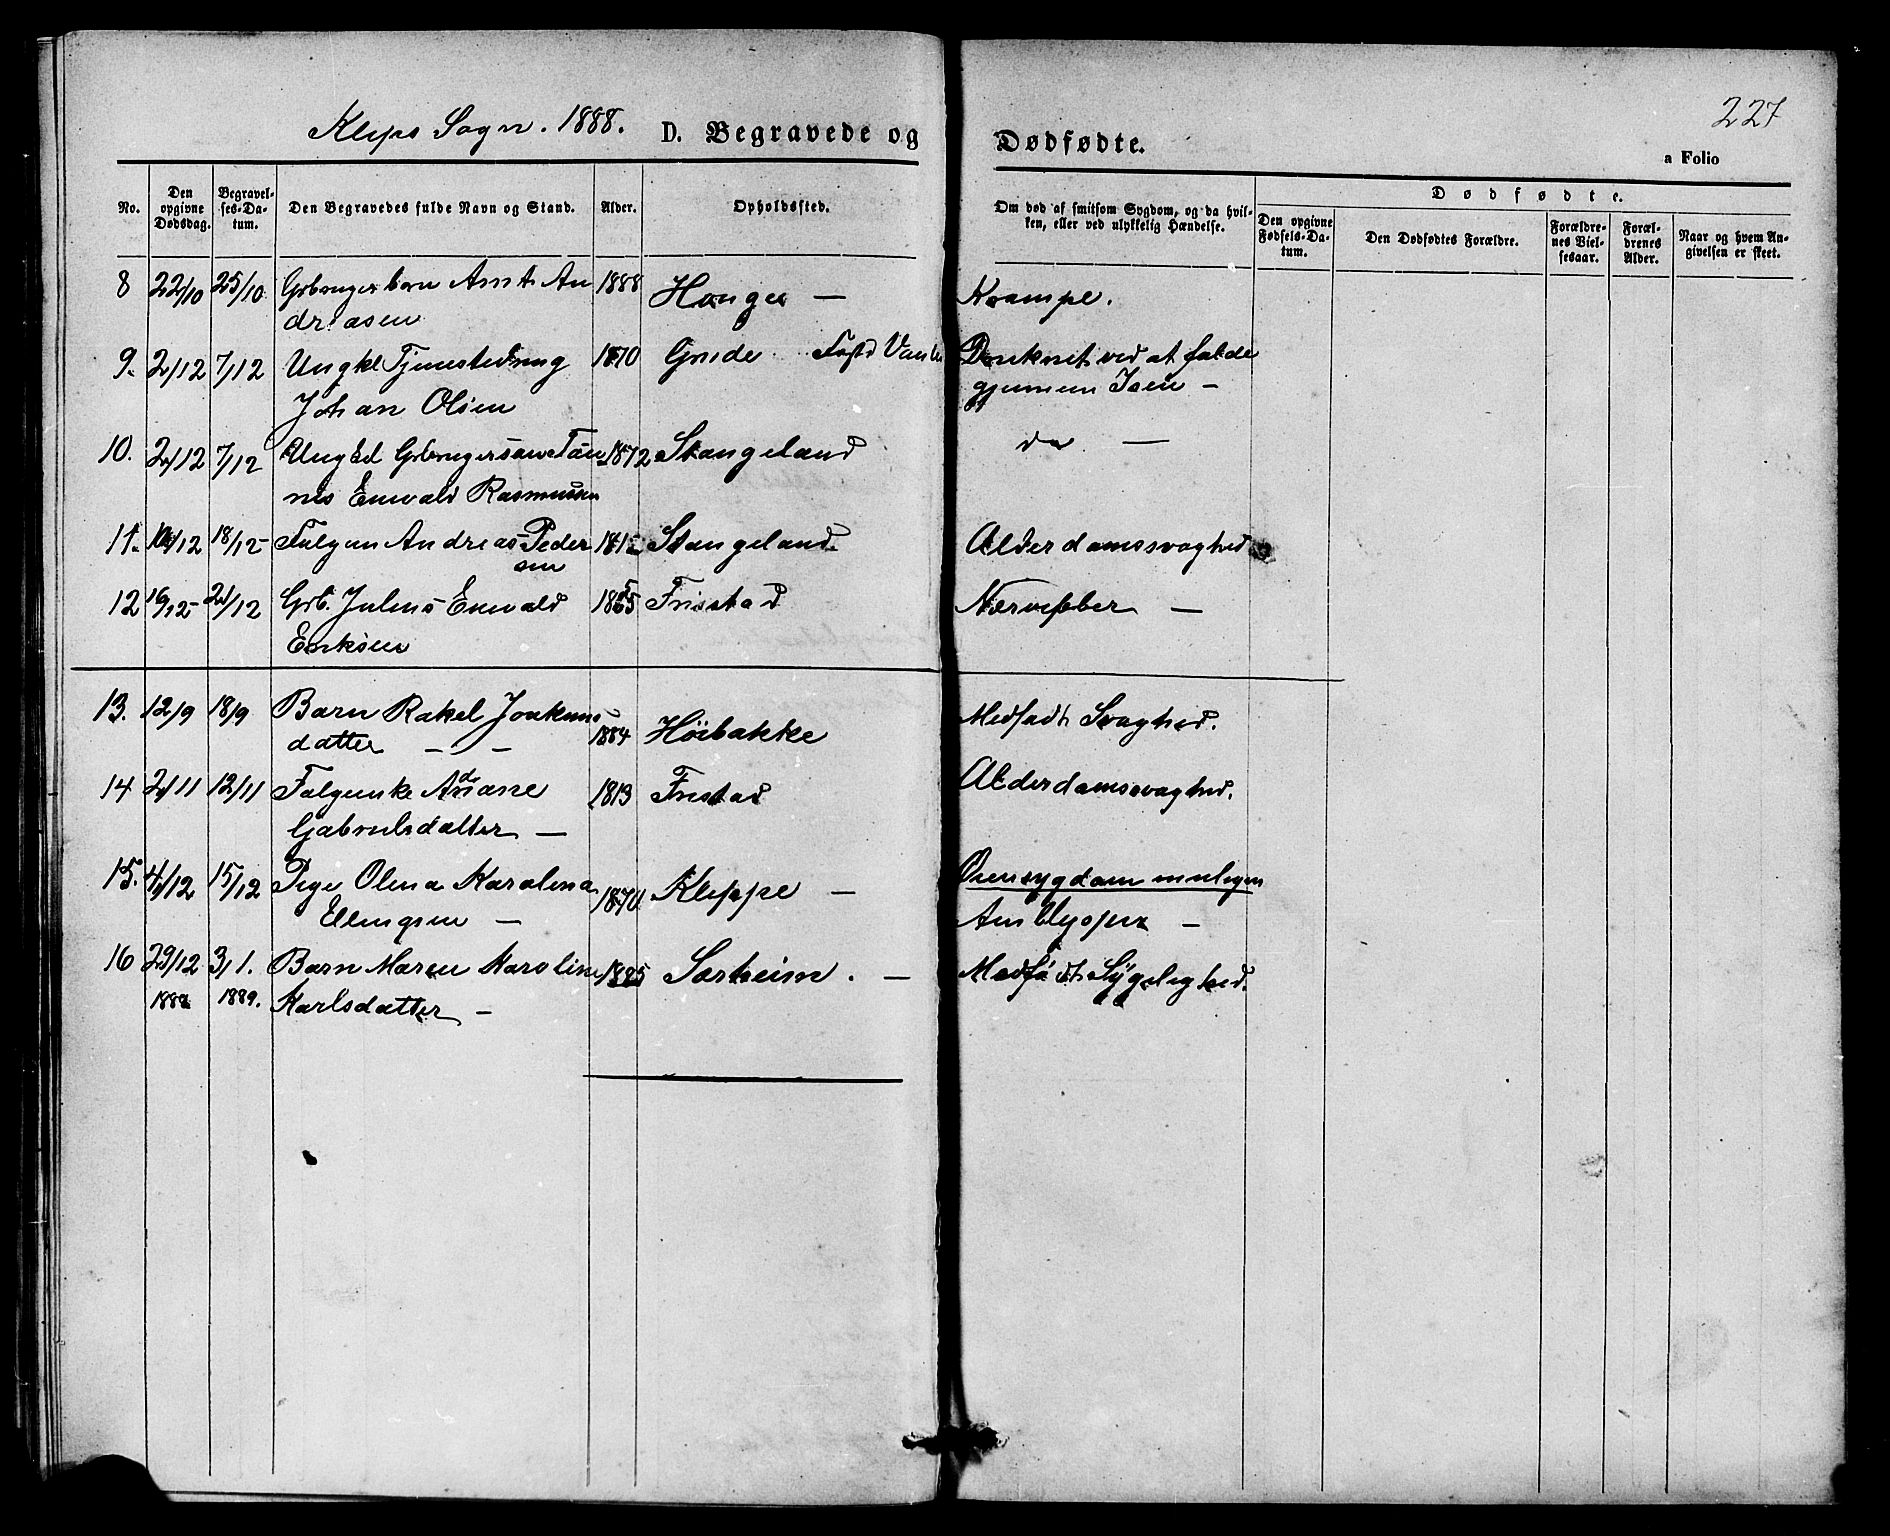 Kleps Sogn. 1888. D. Begravede og Dødfødte. 227
a Folio
No. Den opgivne Dødsdag. Begravelses-Datum. Den Begravedes fulde Navn og Stand. Alder. Opholdssted. Om død af smitsom Sygdom, og da hvilken, eller ved ulykkelig Hændelse. Dødfødte.
Den opgivne Fødsels-Datum. Den Dødfødtes Forældre. Forældrenes Vielsesaar. Forældrenes Alder. Naar og hvem Angivelsen er skeet.
8 22/10 25/10 Grbruger barn Arnt An 1888 Hauge — Krampe.
driasen
9. 2/12 7/12 Ungkl Tjenestedreng 1870 Grude Druknet ved at falde
Johan Olsen gjennem Isen —
10. 2/12 7/12 Ungkl Grbrugersøn Tøn 1872 Stangeland do —
nes Enevald Rasmussen
11. 18/12 Folgem Andreas Peder Stangeland. Alderdomssvaghed
sen
12 16/12 21/12 Grb. Julius Enevald Friestad Nervefeber —
Eriksen
13. 12/9 18/9 Barn Rakel Joakims 1884 Høibakke Medfødt Svaghed.
datter — —
14 2/11 12/11 Folgeenke Adriane 1813 Friestad Alderdomssvaghed.
Gabrielsdatter —
15. 4/12 15/12 Pige Olena Karolina 1870 Kleppe — Øiensygdom
Ellingsen — Amblyopia —
16 29/12 3/1. Barn Maren Karoline 1885 Sørheim. — Medfødt Sygelighed.
1888 1889. Karlsdatter —